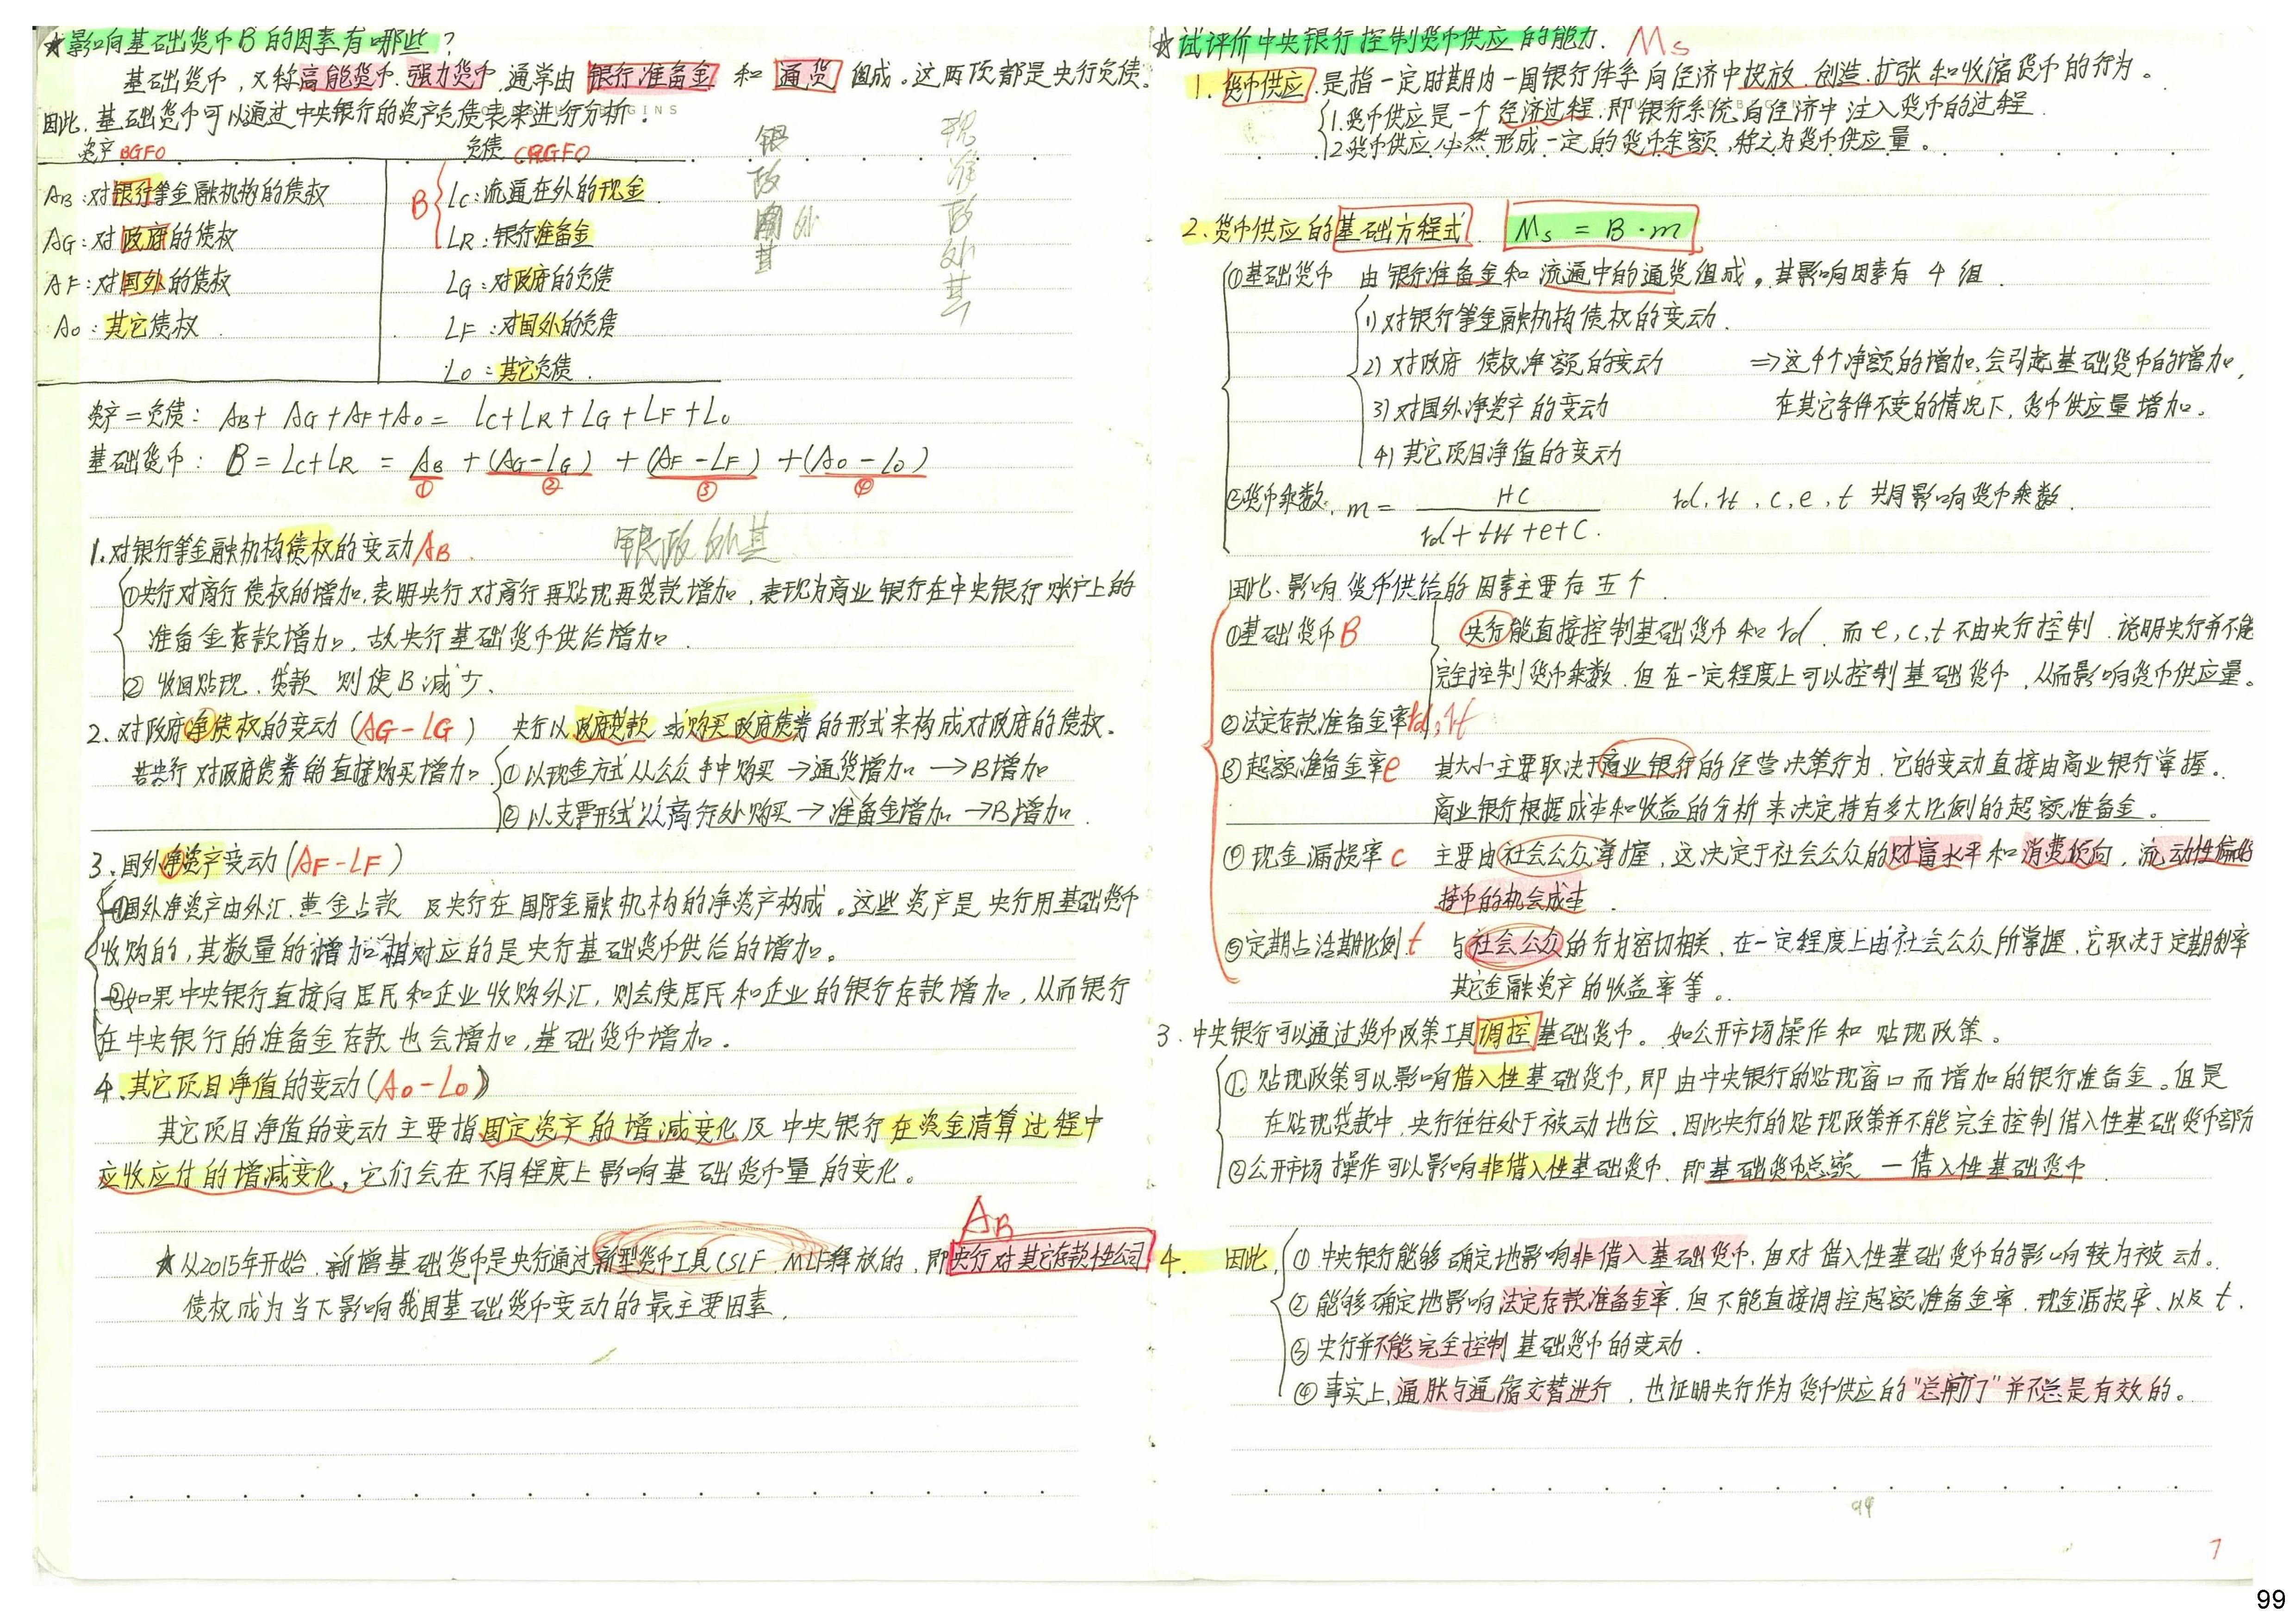 ★影响基础货币B的因素有哪些?
基础货币,又称高能货币、强力货币,通常由 银行准备金 和 通货 组成。这两项都是央行负债。
因此,基础货币可以通过中央银行的资产负债表来进行分析:
资产 BGFO 负债 CRGFO
AB:对银行等金融机构的债权
AG:对政府的债权
AF:对国外的债权
Ao:其它债权
B
Lc:流通在外的现金
LR:银行准备金
LG:对政府的负债
LF:对国外的负债
Lo:其它负债
银
政
外
其
现
准
政
外
其
资产=负债: AB+AG+AF+Ao=Lc+LR+LG+LF+Lo
基础货币: B=Lc+LR=AB+(AG-LG)+(AF-LF)+(Ao-Lo)
① ② ③ ④
银政外其
1.对银行等金融机构债权的变动AB
①央行对商行债权的增加,表明央行对商行再贴现再贷款增加,表现为商业银行在中央银行账户上的
准备金存款增加,故央行基础货币供给增加.
② 收回贴现、贷款 则使B减少.
2.对政府净债权的变动(AG-LG) 央行以政府贷款或购买政府债券的形式来构成对政府的债权.
若央行对政府债券的直接购买增加
①以现金方式从公众手中购买→通货增加→B增加
②以支票形式从商行处购买→准备金增加→B增加.
3.国外净资产变动(AF-LF)
①国外净资产由外汇、黄金占款 及央行在国际金融机构的净资产构成。这些资产是央行用基础货币
收购的,其数量的增加相对应的是央行基础货币供给的增加。
②如果中央银行直接向居民和企业收购外汇,则会使居民和企业的银行存款增加,从而银行
在中央银行的准备金存款也会增加,基础货币增加.
4.其它项目净值的变动(Ao-Lo)
其它项目净值的变动主要指固定资产的增减变化及中央银行在资金清算过程中
应收应付的增减变化,它们会在不同程度上影响基础货币量的变化。
AB
★从2015年开始,新增基础货币是央行通过新型货币工具(SLF、MLF释放的,即央行对其它存款性公司
债权成为当下影响我国基础货币变动的最主要因素.
☆试评价中央银行控制货币供应的能力. Ms
1.货币供应,是指一定时期内一国银行体系向经济中投放、创造、扩张和收缩货币的行为。
1.货币供应是一个经济过程,即银行系统向经济中注入货币的过程.
2.货币供应必然形成一定的货币余额,称之为货币供应量。
2.货币供应的基础方程式 Ms=B·m
①基础货币 由银行准备金和流通中的通货组成,其影响因素有4组.
1)对银行等金融机构债权的变动.
2)对政府债权净额的变动
3)对国外净资产的变动
4)其它项目净值的变动
⇒这4个净额的增加,会引起基础货币的增加,
在其它条件不变的情况下,货币供应量增加。
②货币乘数. m= 1+C / rd+t·rt+e+C. rd,rt,c,e,t共同影响货币乘数.
因此,影响货币供给的因素主要有五个.
①基础货币B 央行能直接控制基础货币和rd,而e,c,t不由央行控制.说明央行并不能
完全控制货币乘数,但在一定程度上可以控制基础货币,从而影响货币供应量。
②法定存款准备金率rd,rt
③超额准备金率e 其大小主要取决于商业银行的经营决策行为,它的变动直接由商业银行掌握.
商业银行根据成本和收益的分析来决定持有多大比例的超额准备金。
④现金漏损率c 主要由社会公众掌握,这决定于社会公众的财富水平和消费倾向,流动性偏好
持币的机会成本.
⑤定期占活期比例t 与社会公众的行为密切相关,在一定程度上由社会公众所掌握,它取决于定期利率
其它金融资产的收益率等。
3.中央银行可以通过货币政策工具调控基础货币。如公开市场操作和贴现政策。
①贴现政策可以影响借入性基础货币,即由中央银行的贴现窗口而增加的银行准备金。但是
在贴现贷款中,央行往往处于被动地位,因此央行的贴现政策并不能完全控制借入性基础货币部分
②公开市场操作可以影响非借入性基础货币,即基础货币总额-借入性基础货币.
4. 因此,①中央银行能够确定地影响非借入基础货币,但对借入性基础货币的影响较为被动。
②能够确定地影响法定存款准备金率,但不能直接调控超额准备金率、现金漏损率、以及t.
③央行并不能完全控制基础货币的变动.
④事实上,通胀与通缩交替进行,也证明央行作为货币供应的"总闸门"并不总是有效的。
94
7
99